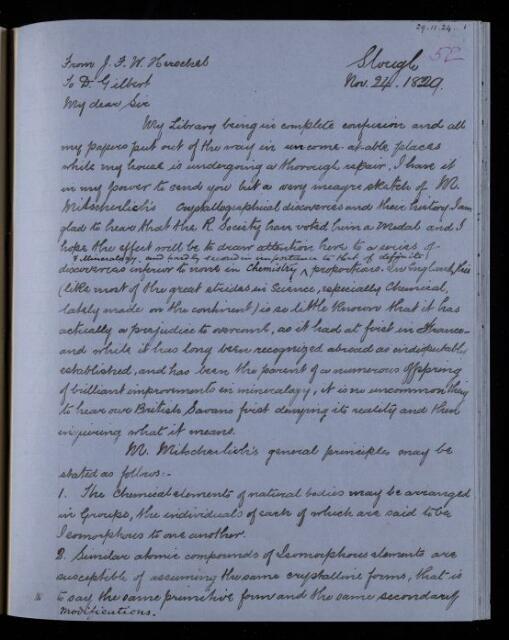 29.11.24. 1
From J. F. W. Herschel Slough 52
To D. Gilbert Nov. 24. 1829.
My dear Sir
My Library being in complete confusion and all
my papers put out of the way in un-come-at-able places
while my house is undergoing a thorough repair, I have it
in my power to send you but a very meagre sketch of M.
Mitscherlich's Crystallographical discoveries and their history I am
glad to hear that the R. Society has voted him a Medal and I
hope the effect will be to draw attention here to a series of
& Mineralogy, and hardly second in importance to that of definite
discoveries inferior to none in Chemistry ^ proportions. In England, this
(like most of the great strides in Science, especially Chemical,
lately made on the continent) is so little known that it has
actually a prejudice to overcome, as it had at first in France -
and while it has long been recognized abroad as indisputably
established, and has been the parent of a numerous offspring
of brilliant improvements in mineralogy, it is no uncommon thing
to hear our British Savans first denying its reality and then
inquiring what it means.
M. Mitscherlich's general principles may be
stated as follows:-
1. The Chemical elements of natural bodies may be arranged
in Groups, the individuals of each of which are said to be
Isomorphous to one another.
2. Similar atomic compounds of Isomorphous elements are
susceptible of assuming the same crystalline forms, that is
to say, the same primitive form and the same secondary
modifications.